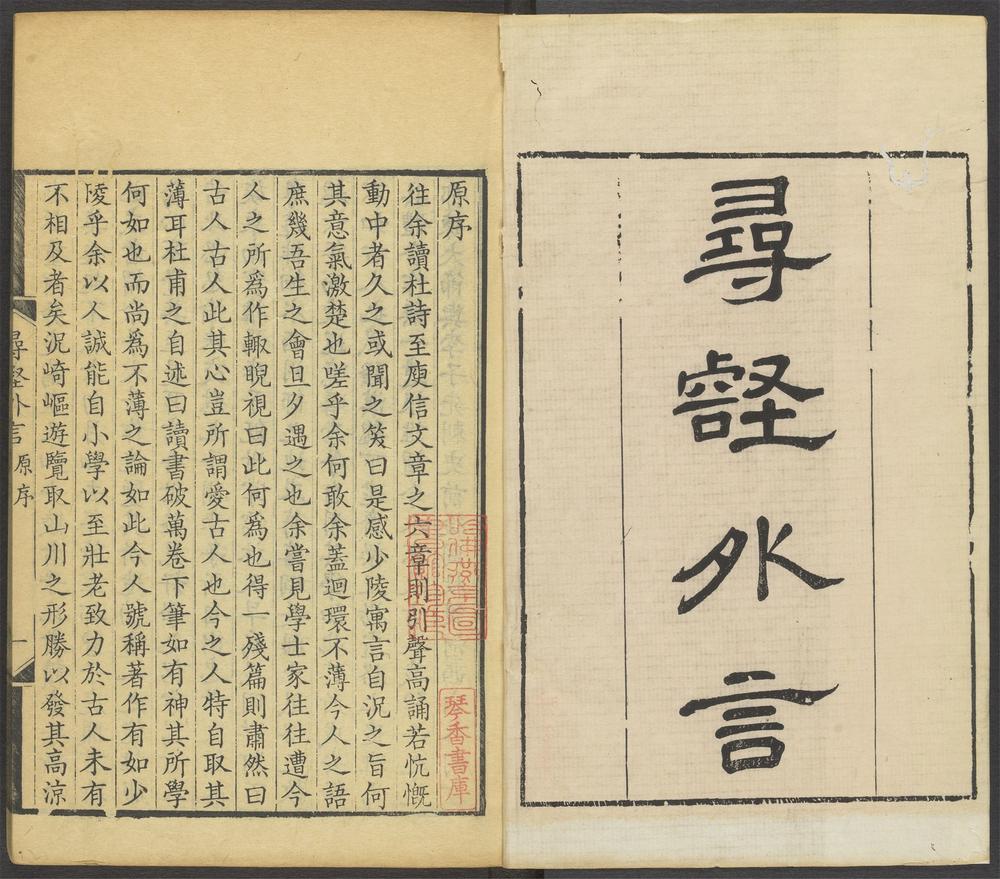 尋壑外言
原序
往余讀杜詩至庾信文章之六章則引聲高誦若忼慨
動中者久之或聞之笑曰是感少陵寓言自况之旨何
其意氣激楚也嗟乎余何敢余葢迴環不薄今人之語
庶幾吾生之會旦夕遇之也余嘗見學士家往往遭今
人之所爲作輙睨視曰此何爲也得一殘篇則肅然曰
古人古人此其心豈所謂愛古人也今之人特自取其
薄耳杜甫之自述曰讀書破萬卷下筆如有神其所學
何如也而尚爲不薄之論如此今人號稱著作有如少
陵乎余以人誠能自小學以至壯老致力於古人未有
不相及者矣况崎嶇遊覽取山川之形勝以發其高涼
尋壑外言 原序 一
琴香書庫